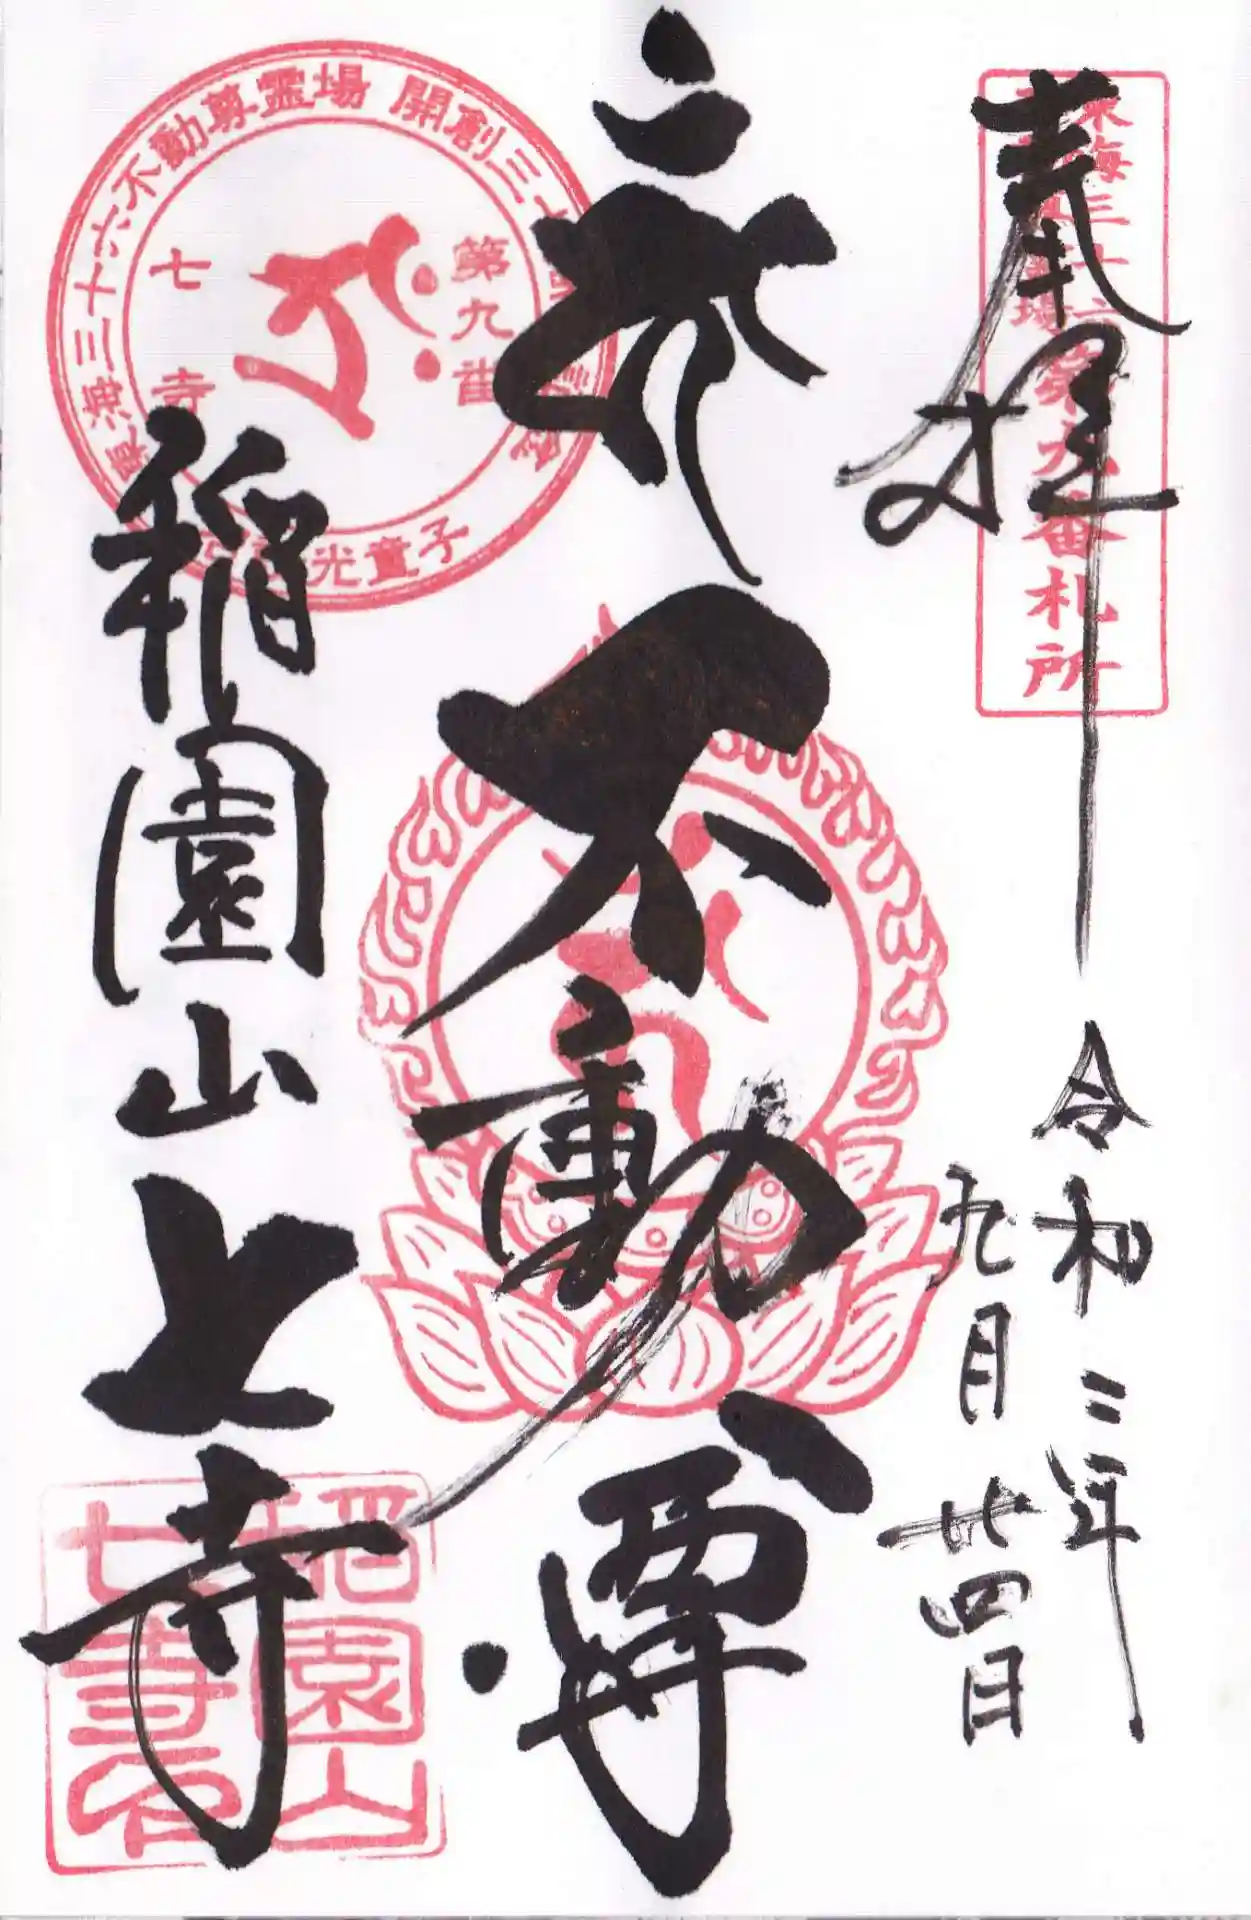 奉拝
令和三年
九月廿四日
不動尊
稲園山
七寺
東海三十六
第九番札所
東海三十六不動尊霊場 開創三十
第九番
七寺
稲園山
七寺